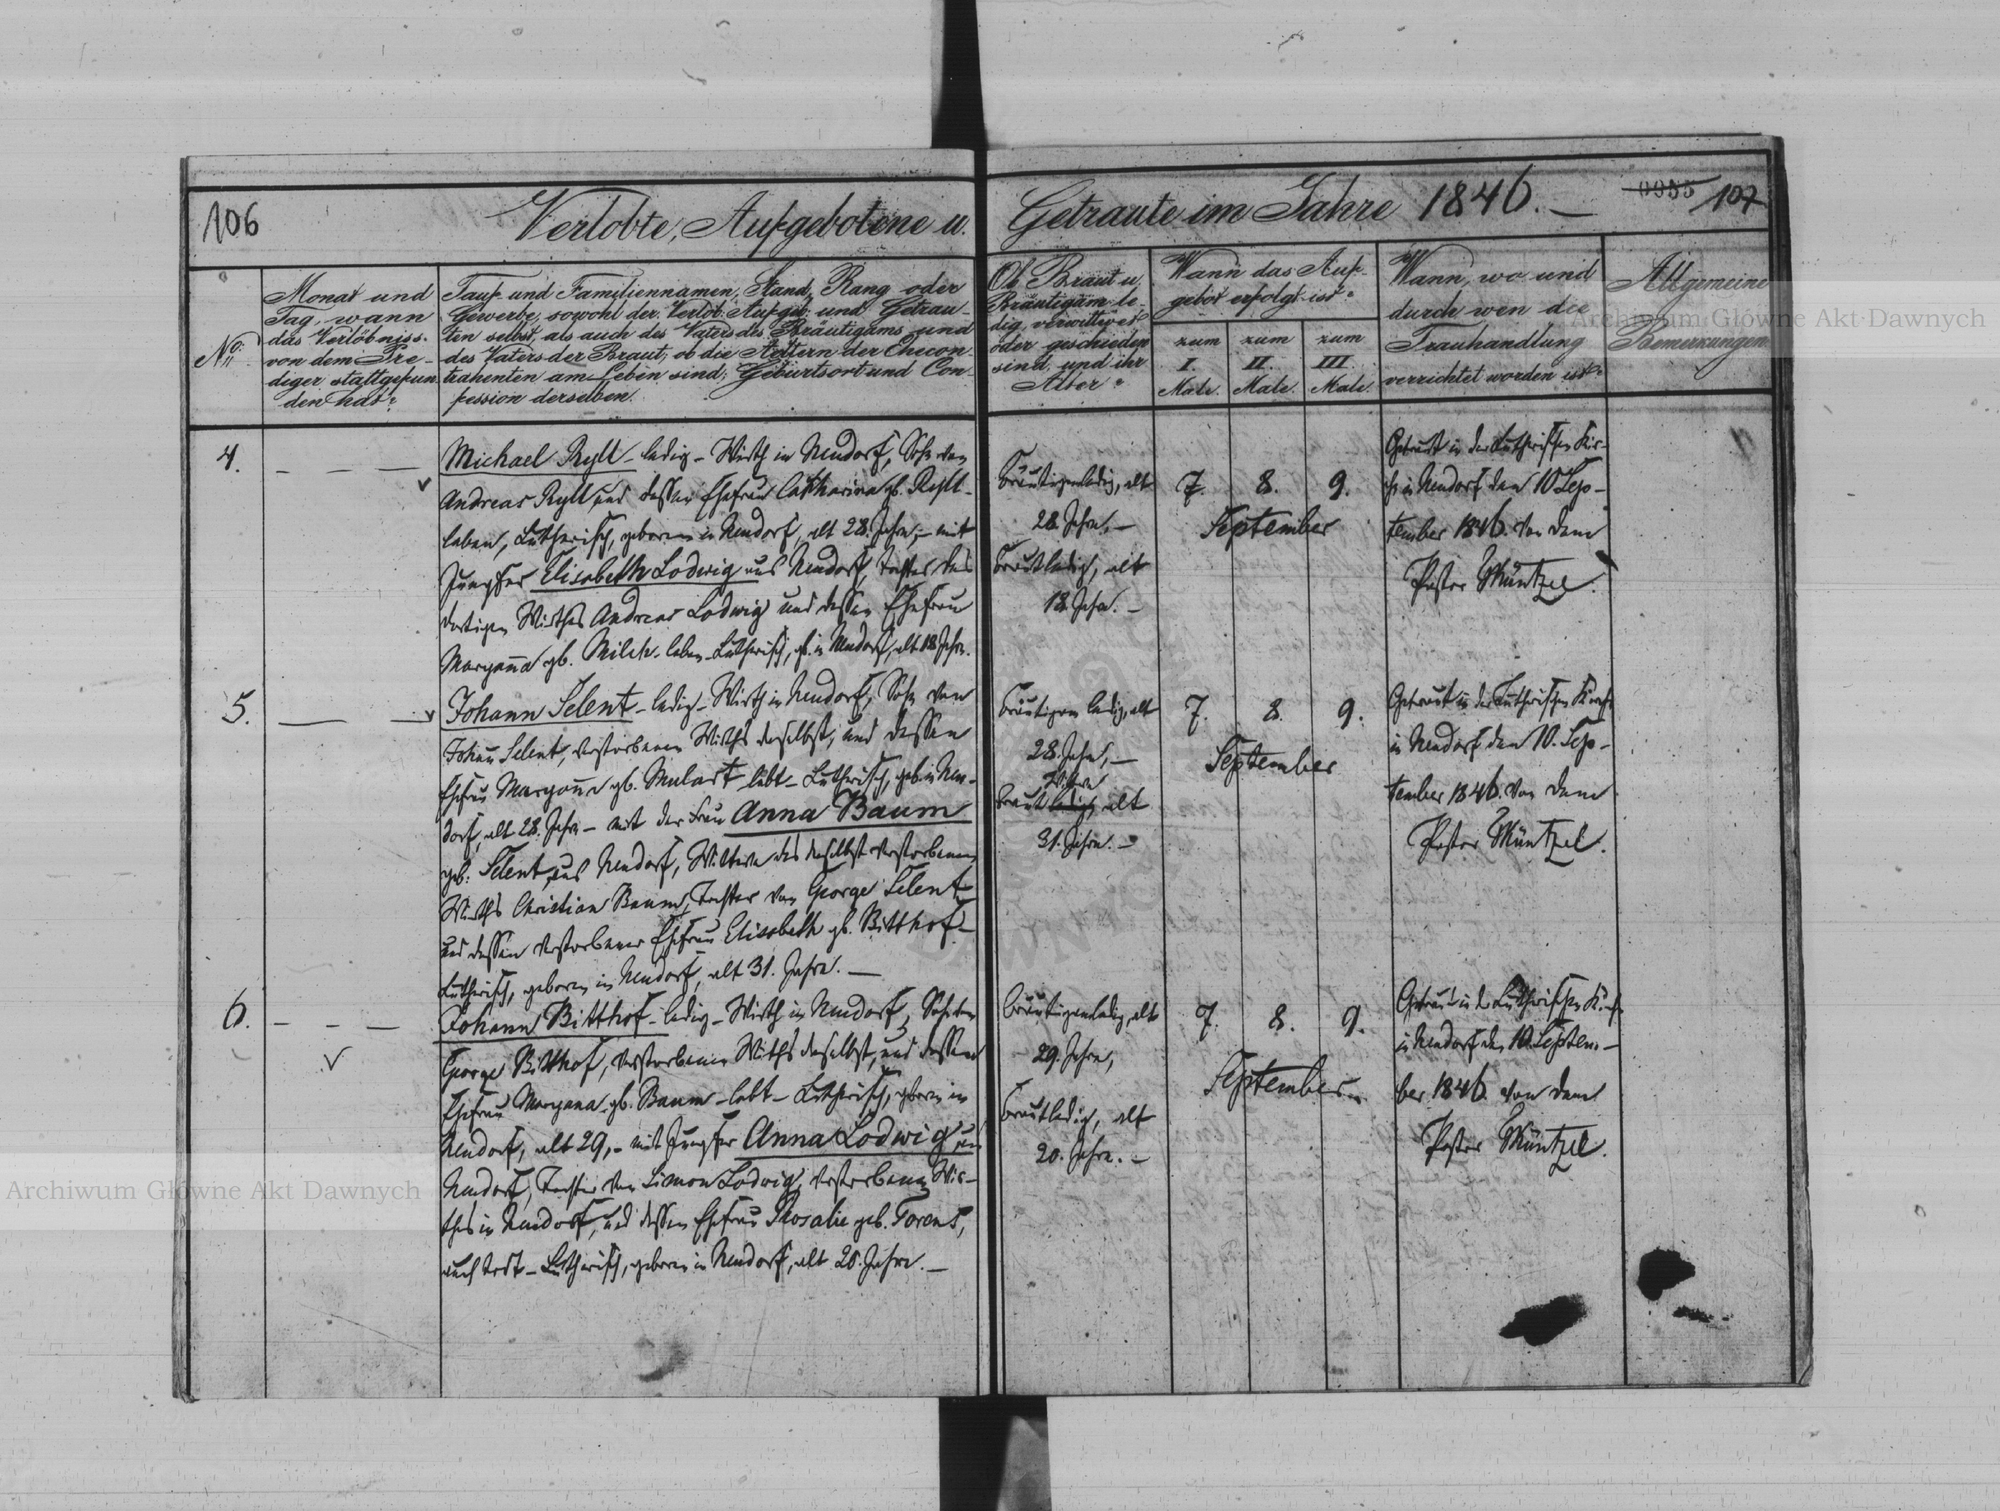 106
Verlobte, Aufgebotene u.
Getraute im Jahre 1846.
0955 107
No.
Monat und
Tag, wann
das Verlöbniss
von dem Pre-
diger stattgefun
den hat?
Tauf und Familiennamen, Stand, Rang oder
Gewerbe, sowohl der Verlob. Aufgeb. und Getrau-
ten selbst, als auch des Vaters des Bräutigams und
des Vaters der Braut, ob die Aeltern der Ehecon-
trahenten am Leben sind; Geburtsort und Con-
fession derselben.
Ob Braut u.
Bräutigam le-
dig, verwittwet
oder geschieden
sind, und ihr
Alter?
Wann das Auf-
gebot erfolgt ist?
zum
I.
Male.
zum
II.
Male.
zum
III.
Male.
Wann, wo und
durch wen die
Trauhandlung
verrichtet worden ist?
Allgemeine
Bemerkungen
4.
Michael Rylt - ledig - Wirth in Neudorf, Sohn von
Andreas Rylt und dessen Ehefrau Catharina gb. Rylt -
leben, Lutherisch, geboren in Neudorf, alt 28. Jahre, - mit
Jungfer Elisabeth Lodwig aus Neudorf, Tochter des
dortigen Wirthes Andreas Lodwig und dessen Ehefrau
Maryanna gb. Milch - leben - Lutherisch, gb. in Neudorf, alt 18 Jahre.
Bräutigam ledig, alt
28. Jahre, -
Braut ledig, alt
18. Jahre. -
7. 8. 9.
September
Getraut in der Lutherischen Kir-
che in Neudorf den 10 Sep-
tember 1846. von dem
Pastor Müntzel.
5.
Johann Selent - ledig - Wirth in Neudorf, Sohn von
Johann Selent, verstorbenen Wirths daselbst, und dessen
Ehefrau Maryanna gb. Mulart - lebt - Lutherisch, geb. in Neu-
dorf, alt 28. Jahre - mit der Frau Anna Baum
geb. Selent, aus Neudorf, Wittwe des daselbst verstorbenen
Wirths Christian Baum, Tochter von George Selent
und dessen verstorbener Ehefrau Elisabeth gb. Bitthof -
Lutherisch, geboren in Neudorf, alt 31. Jahre. -
Bräutigam ledig, alt
28. Jahre, -
Wittwe
Braut ledig, alt
31. Jahre. -
7. 8. 9.
September
Getraut in der Lutherischen Kirche
in Neudorf den 10. Sep-
tember 1846. von dem
Pastor Müntzel.
6.
Johann Bitthof - ledig - Wirth in Neudorf, Sohn von
George Bitthof, verstorbenen Wirths daselbst, und dessen
Ehefrau Maryana gb. Baum - lebt - Lutherisch, geboren in
Neudorf, alt 29, - mit Jungfer Anna Lodwig aus
Neudorf, Tochter von Simon Lodwig, verstorbenen Wir-
thes in Neudorf, und dessen Ehefrau Rosalie geb. Torens,
auch todt - Lutherisch, geboren in Neudorf, alt 20. Jahre. -
Bräutigam ledig, alt
29. Jahre,
Braut ledig, alt
20. Jahre. -
7. 8. 9.
September
Getraut in der Lutherischen Kirche
in Neudorf den 10. Septem-
ber 1846. von dem
Pastor Müntzel.
Archiwum Główne Akt Dawnych
Archiwum Główne Akt Dawnych